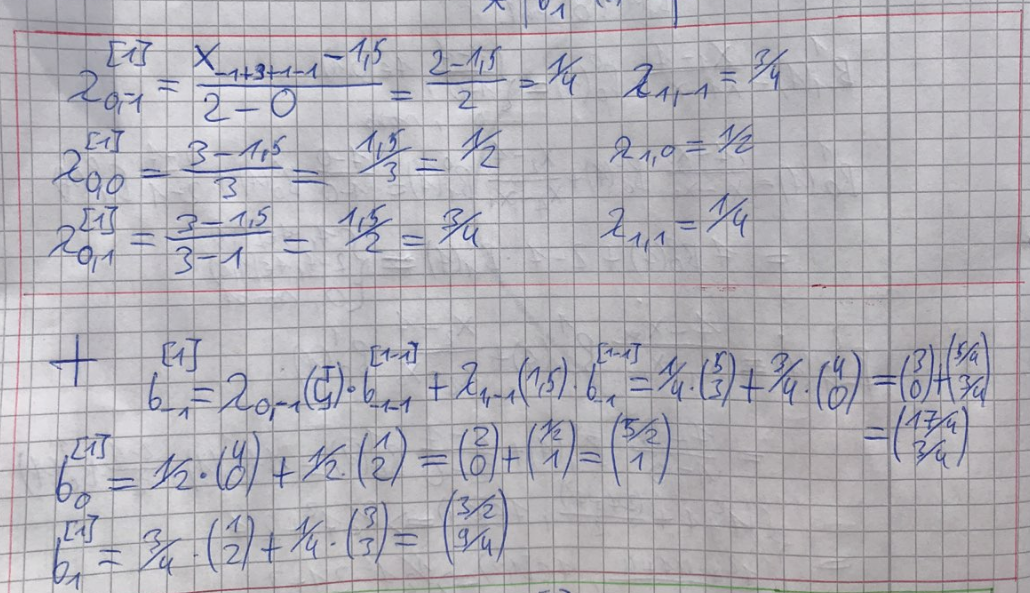 λ_{0,-1}^{[1]} = (x_{-1+3+1-1} - 1,5)/(2 - 0) = (2 - 1,5)/2 = 1/4 λ_{1,-1} = 3/4
λ_{0,0}^{[1]} = (3 - 1,5)/3 = 1,5/3 = 1/2 λ_{1,0} = 1/2
λ_{0,1}^{[1]} = (3 - 1,5)/(3 - 1) = 1,5/2 = 3/4 λ_{1,1} = 1/4
+ b_{-1}^{[1]} = λ_{0,-1}( )·b_{-1-1}^{[1-1]} + λ_{1,-1}(1,5)·b_{-1}^{[1-1]} = 1/4·(5 3) + 3/4·(4 0) = (3 0) + (5/4 3/4)
= (17/4 3/4)
b_0^{[1]} = 1/2·(4 0) + 1/2·(1 2) = (2 0) + (1/2 1) = (5/2 1)
b_1^{[1]} = 3/4·(1 2) + 1/4·(3 3) = (3/2 9/4)